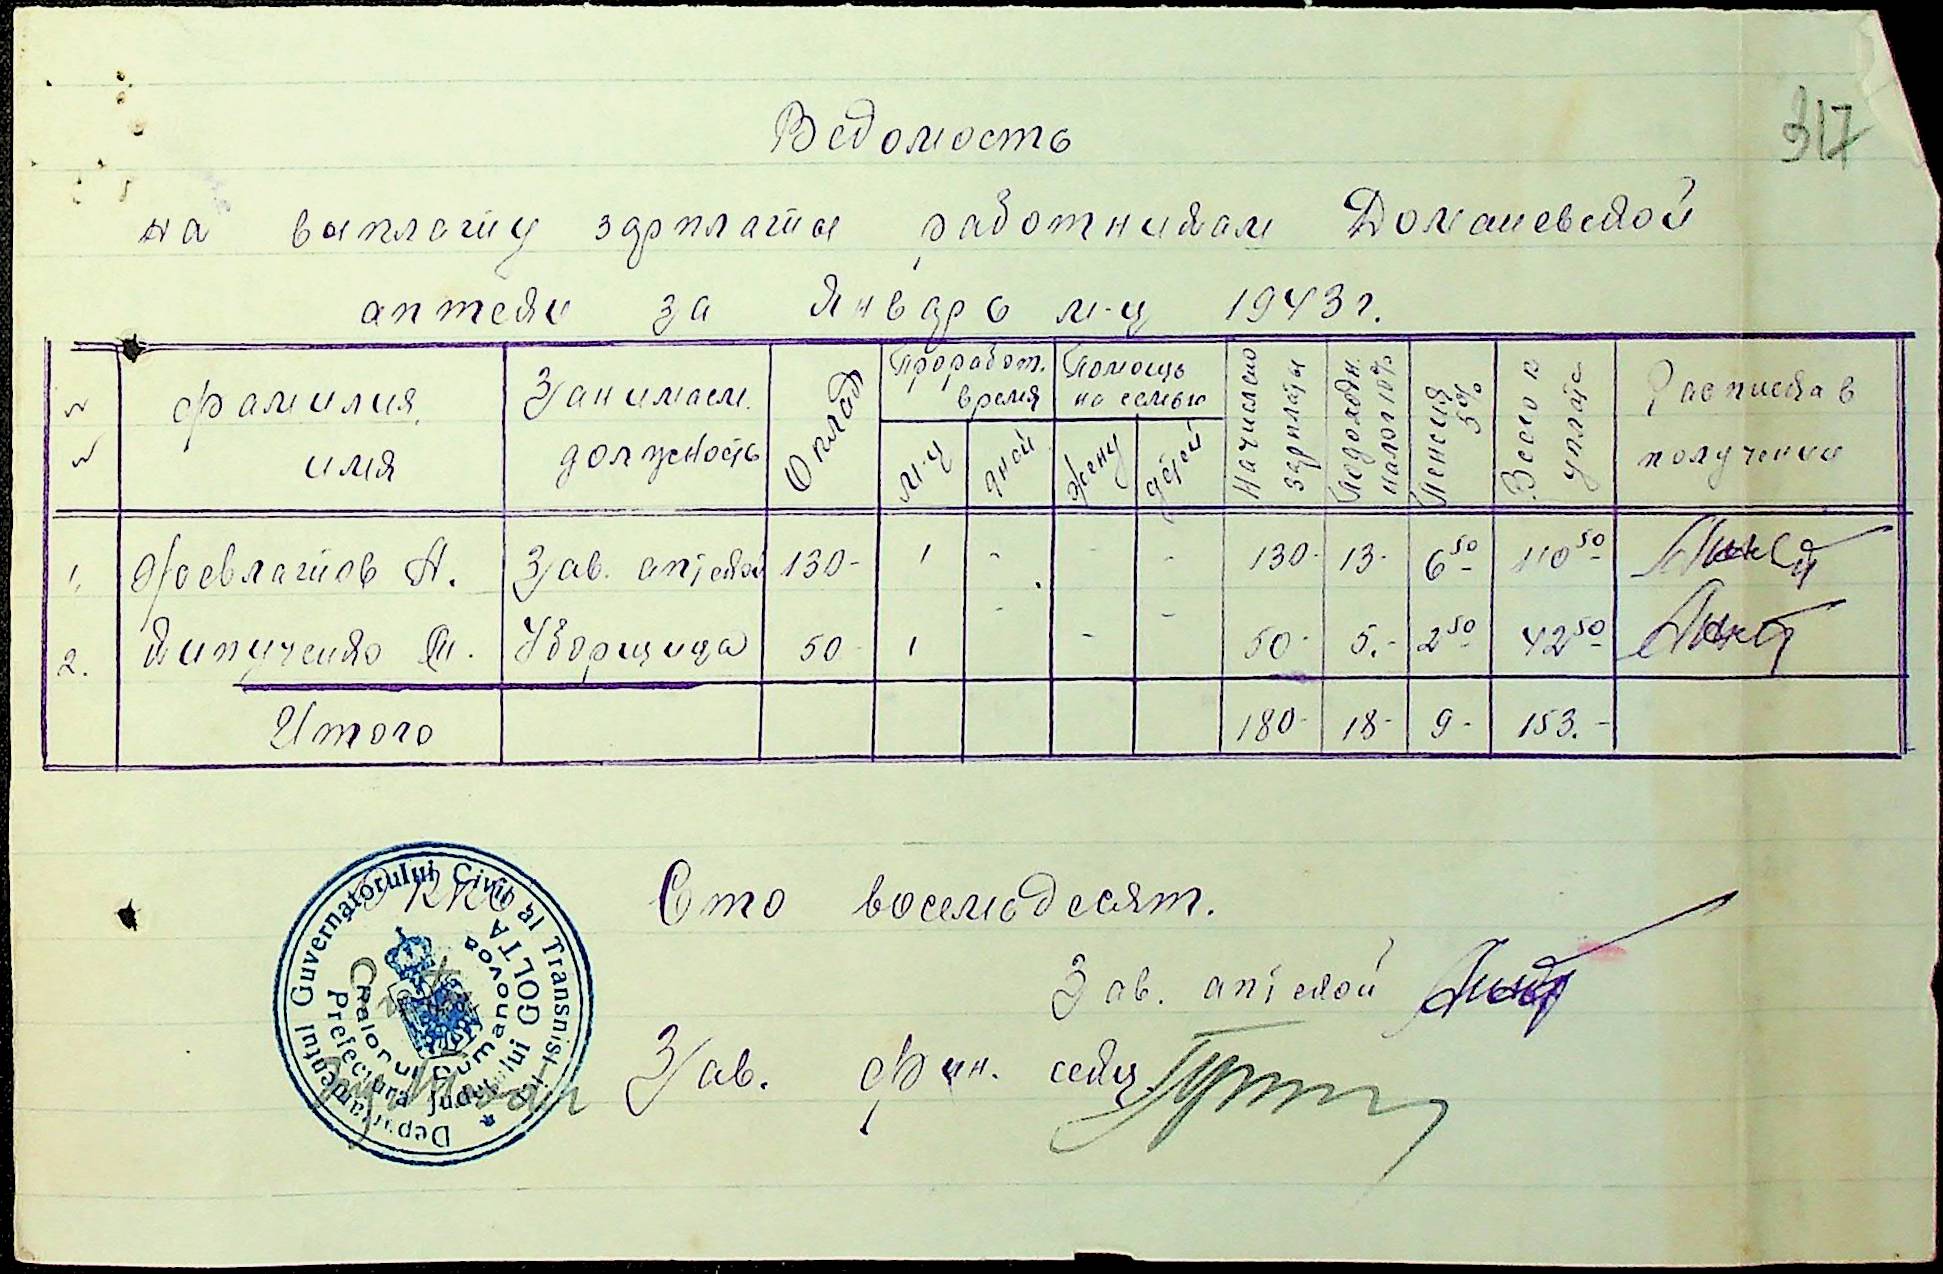 317
Ведомость
на выплату зарплаты работникам Доманевской
аптеки за Январь м-ц 1943 г.
№ Фамилия, имя Занимаем. должность Оклад Проработ. время м-ц дней Помощь на семью жену детей Начислено зарплаты Подоходн. налог 10% Пенсия 5% Всего к уплате Расписка в получении
1. А. Зав. аптекой 130- 1 - - - 130- 13- 6 50 110 50
2. Уборщица 50- 1 - - - 50- 5.- 2 50 42 50
Итого 180- 18- 9- 153.-
Сто восемьдесят.
Зав. аптекой
Зав. фин. секц.
Departamentul Guvernatorului Civil al Transnistriei
Prefectura Județului GOLTA
Raionul Dumanovca